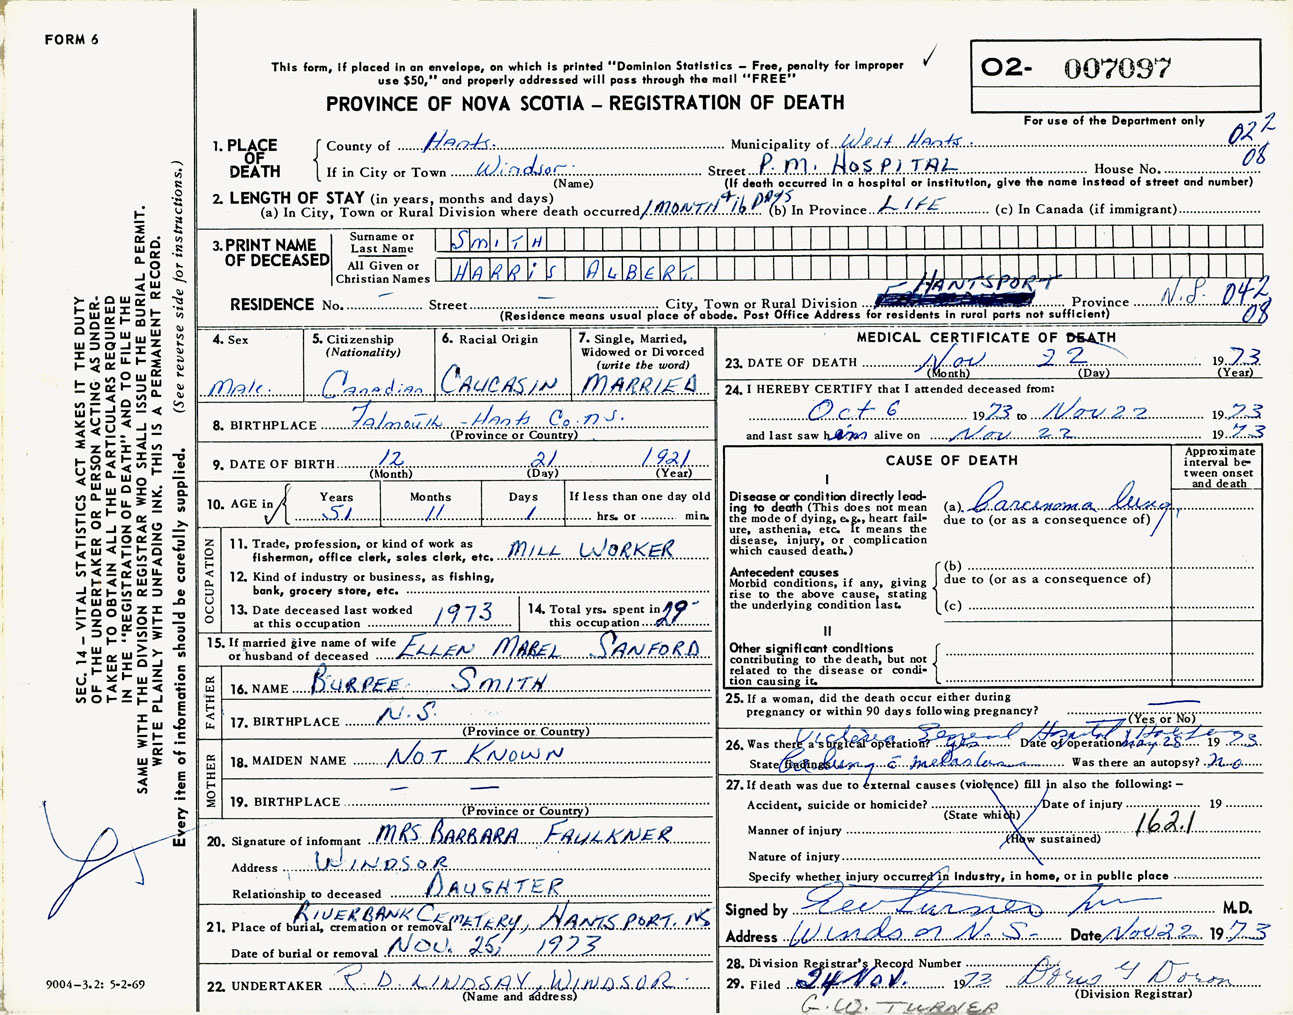 FORM 6
This form, if placed in an envelope, on which is printed "Dominion Statistics – Free, penalty for improper
use $50," and properly addressed will pass through the mail "FREE"
PROVINCE OF NOVA SCOTIA – REGISTRATION OF DEATH
O2- 007097
For use of the Department only
022
08
1. PLACE OF DEATH
County of Hants. Municipality of West Hants.
If in City or Town Windsor. Street P.M. HOSPITAL House No.
(Name) (If death occurred in a hospital or institution, give the name instead of street and number)
2. LENGTH OF STAY (in years, months and days)
(a) In City, Town or Rural Division where death occurred 1 MONTH + 16 DAYS (b) In Province LIFE (c) In Canada (if immigrant)
3. PRINT NAME OF DECEASED
Surname or Last Name SMITH
All Given or Christian Names HARRIS ALBERT
RESIDENCE No. – Street – City, Town or Rural Division HANTSPORT Province N.S. 042
08
(Residence means usual place of abode. Post Office Address for residents in rural parts not sufficient)
4. Sex Male.
5. Citizenship (Nationality) Canadian
6. Racial Origin CAUCASIN
7. Single, Married, Widowed or Divorced (write the word) MARRIED
8. BIRTHPLACE Falmouth – Hants Co. N.S.
(Province or Country)
9. DATE OF BIRTH 12 21 1921
(Month) (Day) (Year)
10. AGE in Years 51 Months 11 Days 1 If less than one day old hrs. or min.
OCCUPATION
11. Trade, profession, or kind of work as
fisherman, office clerk, sales clerk, etc. MILL WORKER
12. Kind of industry or business, as fishing,
bank, grocery store, etc.
13. Date deceased last worked
at this occupation 1973
14. Total yrs. spent in
this occupation 29
15. If married give name of wife
or husband of deceased ELLEN MABEL SANFORD
FATHER
16. NAME BURPEE SMITH
17. BIRTHPLACE N.S.
(Province or Country)
MOTHER
18. MAIDEN NAME NOT KNOWN
19. BIRTHPLACE – –
(Province or Country)
20. Signature of informant MRS BARBARA FAULKNER
Address WINDSOR
Relationship to deceased DAUGHTER
21. Place of burial, cremation or removal RIVERBANK CEMETERY, HANTSPORT. NS
Date of burial or removal NOV. 25, 1973
22. UNDERTAKER R.D. LINDSAY, WINDSOR.
(Name and address)
MEDICAL CERTIFICATE OF DEATH
23. DATE OF DEATH Nov 22 1973
(Month) (Day) (Year)
24. I HEREBY CERTIFY that I attended deceased from:
Oct 6 1973 to Nov 22 1973
and last saw him alive on Nov 22 1973
CAUSE OF DEATH
Approximate interval between onset and death
I
Disease or condition directly leading to death (This does not mean the mode of dying, e.g., heart failure, asthenia, etc. It means the disease, injury, or complication which caused death.)
(a) Carcinoma lung,
due to (or as a consequence of)
Antecedent causes
Morbid conditions, if any, giving rise to the above cause, stating the underlying condition last.
(b)
due to (or as a consequence of)
(c)
II
Other significant conditions contributing to the death, but not related to the disease or condition causing it.
25. If a woman, did the death occur either during
pregnancy or within 90 days following pregnancy? –
(Yes or No)
Victoria General Hospital Halifax
26. Was there a surgical operation? yes Date of operation May 28 1973
State findings Ca lung c̄ metastases Was there an autopsy? no
27. If death was due to external causes (violence) fill in also the following: –
Accident, suicide or homicide? Date of injury 19
(State which)
Manner of injury 162.1
(How sustained)
Nature of injury
Specify whether injury occurred in industry, in home, or in public place
Signed by Geo Turner M.D.
Address Windsor N.S. Date Nov 22 1973
28. Division Registrar's Record Number
29. Filed 24 Nov. 1973 Doris Y Doron
(Division Registrar)
G.W. TURNER
SEC. 14 – VITAL STATISTICS ACT MAKES IT THE DUTY
OF THE UNDERTAKER OR PERSON ACTING AS UNDER-
TAKER TO OBTAIN ALL THE PARTICULARS REQUIRED
IN THE "REGISTRATION OF DEATH" AND TO FILE THE
SAME WITH THE DIVISION REGISTRAR WHO SHALL ISSUE THE BURIAL PERMIT.
WRITE PLAINLY WITH UNFADING INK. THIS IS A PERMANENT RECORD.
Every item of information should be carefully supplied. (See reverse side for instructions.)
9004-3.2: 5-2-69